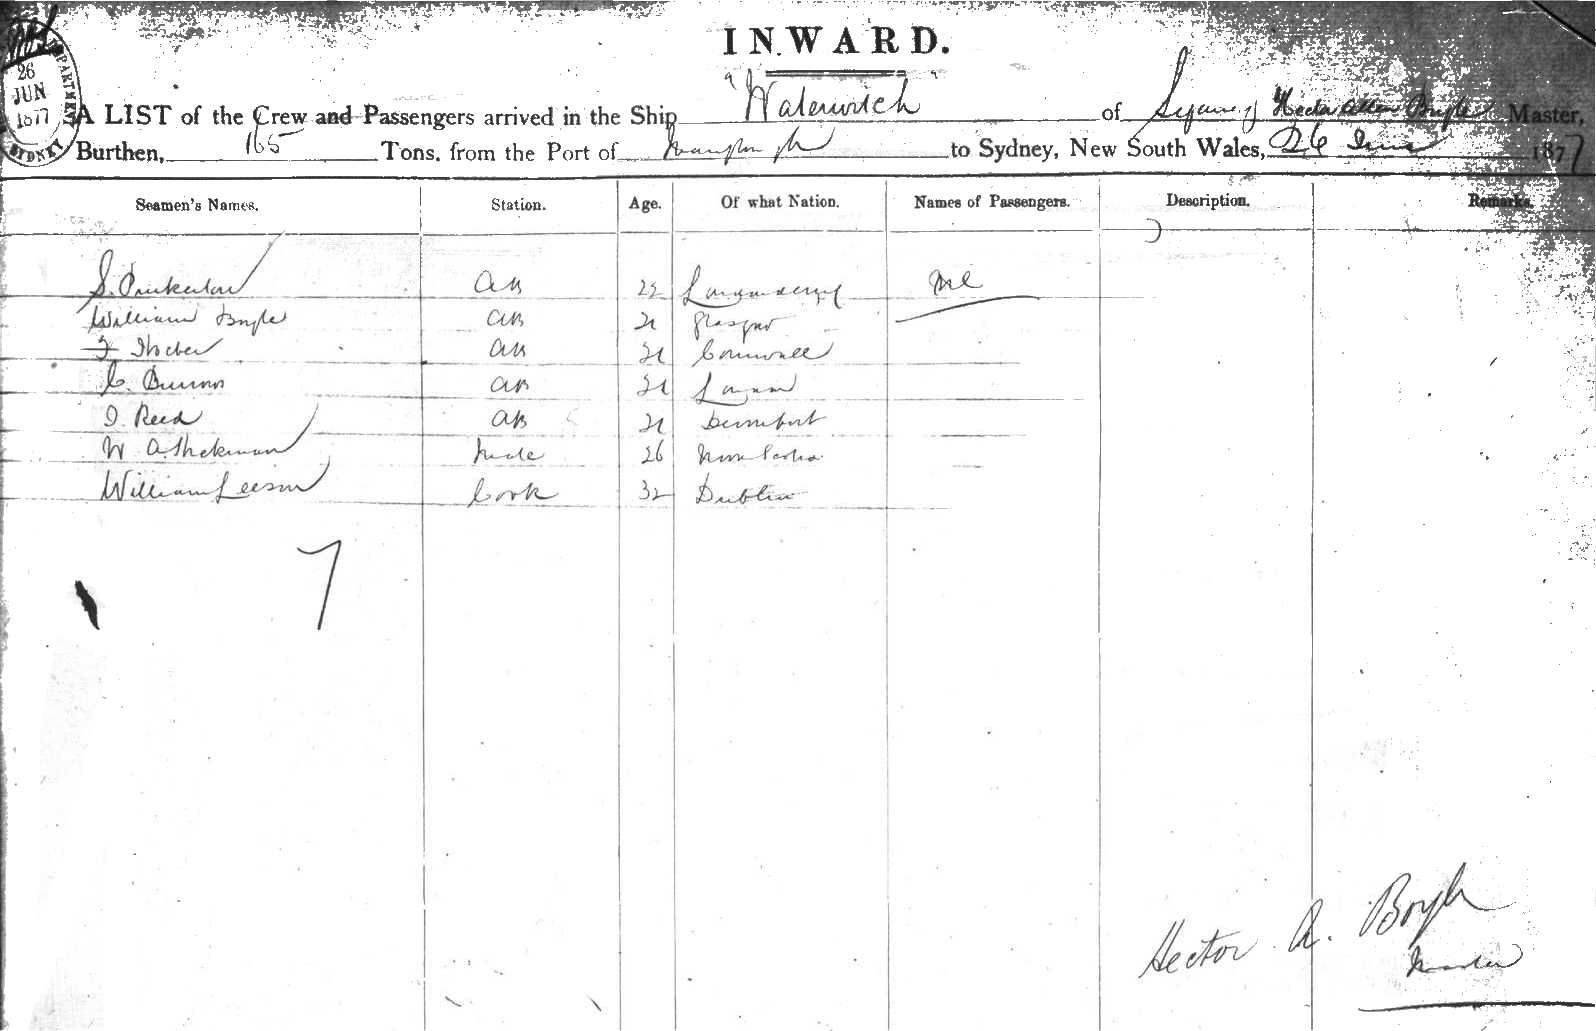 INWARD.
26
JUN
1877
SYDNEY
A LIST of the Crew and Passengers arrived in the Ship "Waterwitch" of Sydney Hector Allan Boyle Master,
Burthen, 165 Tons, from the Port of to Sydney, New South Wales, 26 June 1877
Seamen's Names. Station. Age. Of what Nation. Names of Passengers. Description. Remarks.
S. Pinkerton AB 22 Londonderry Nil
William Boyle AB 21 Glasgow
AB 21 Cornwall
C. AB 21 London
J. Reed AB 21
W. A. Mate 26 Nova Scotia
William Leeson Cook 32 Dublin
7
Hector A. Boyle
Master